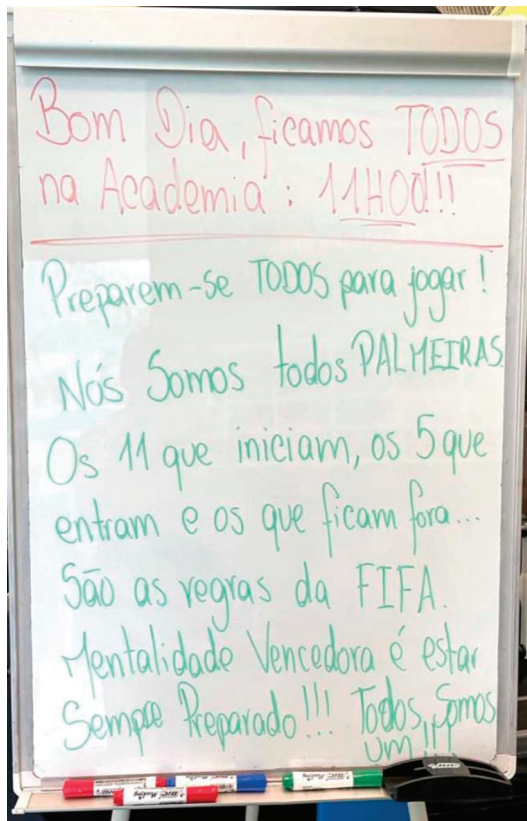 Bom Dia, ficamos TODOS
na Academia : 11H00!!!
Preparem-se TODOS para jogar!
Nós Somos todos PALMEIRAS.
Os 11 que iniciam, os 5 que
entram e os que ficam fora...
São as regras da FIFA.
Mentalidade Vencedora é estar
Sempre Preparado!!! Todos Somos
um!!!